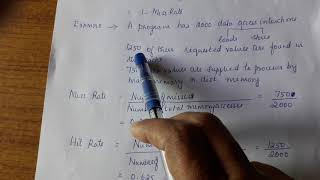 = 1 - Miss Rate
Example → A program has 2000 data access instructions
loads Stores
1250 of these requested values are found in
750 values are supplied to processor by
main memory or disk memory
Miss Rate = Number of misses = 750
Number of total memory accesses 2000
= 0.
Hit Rate = Num = 1250
Number of 2000
= 0.625